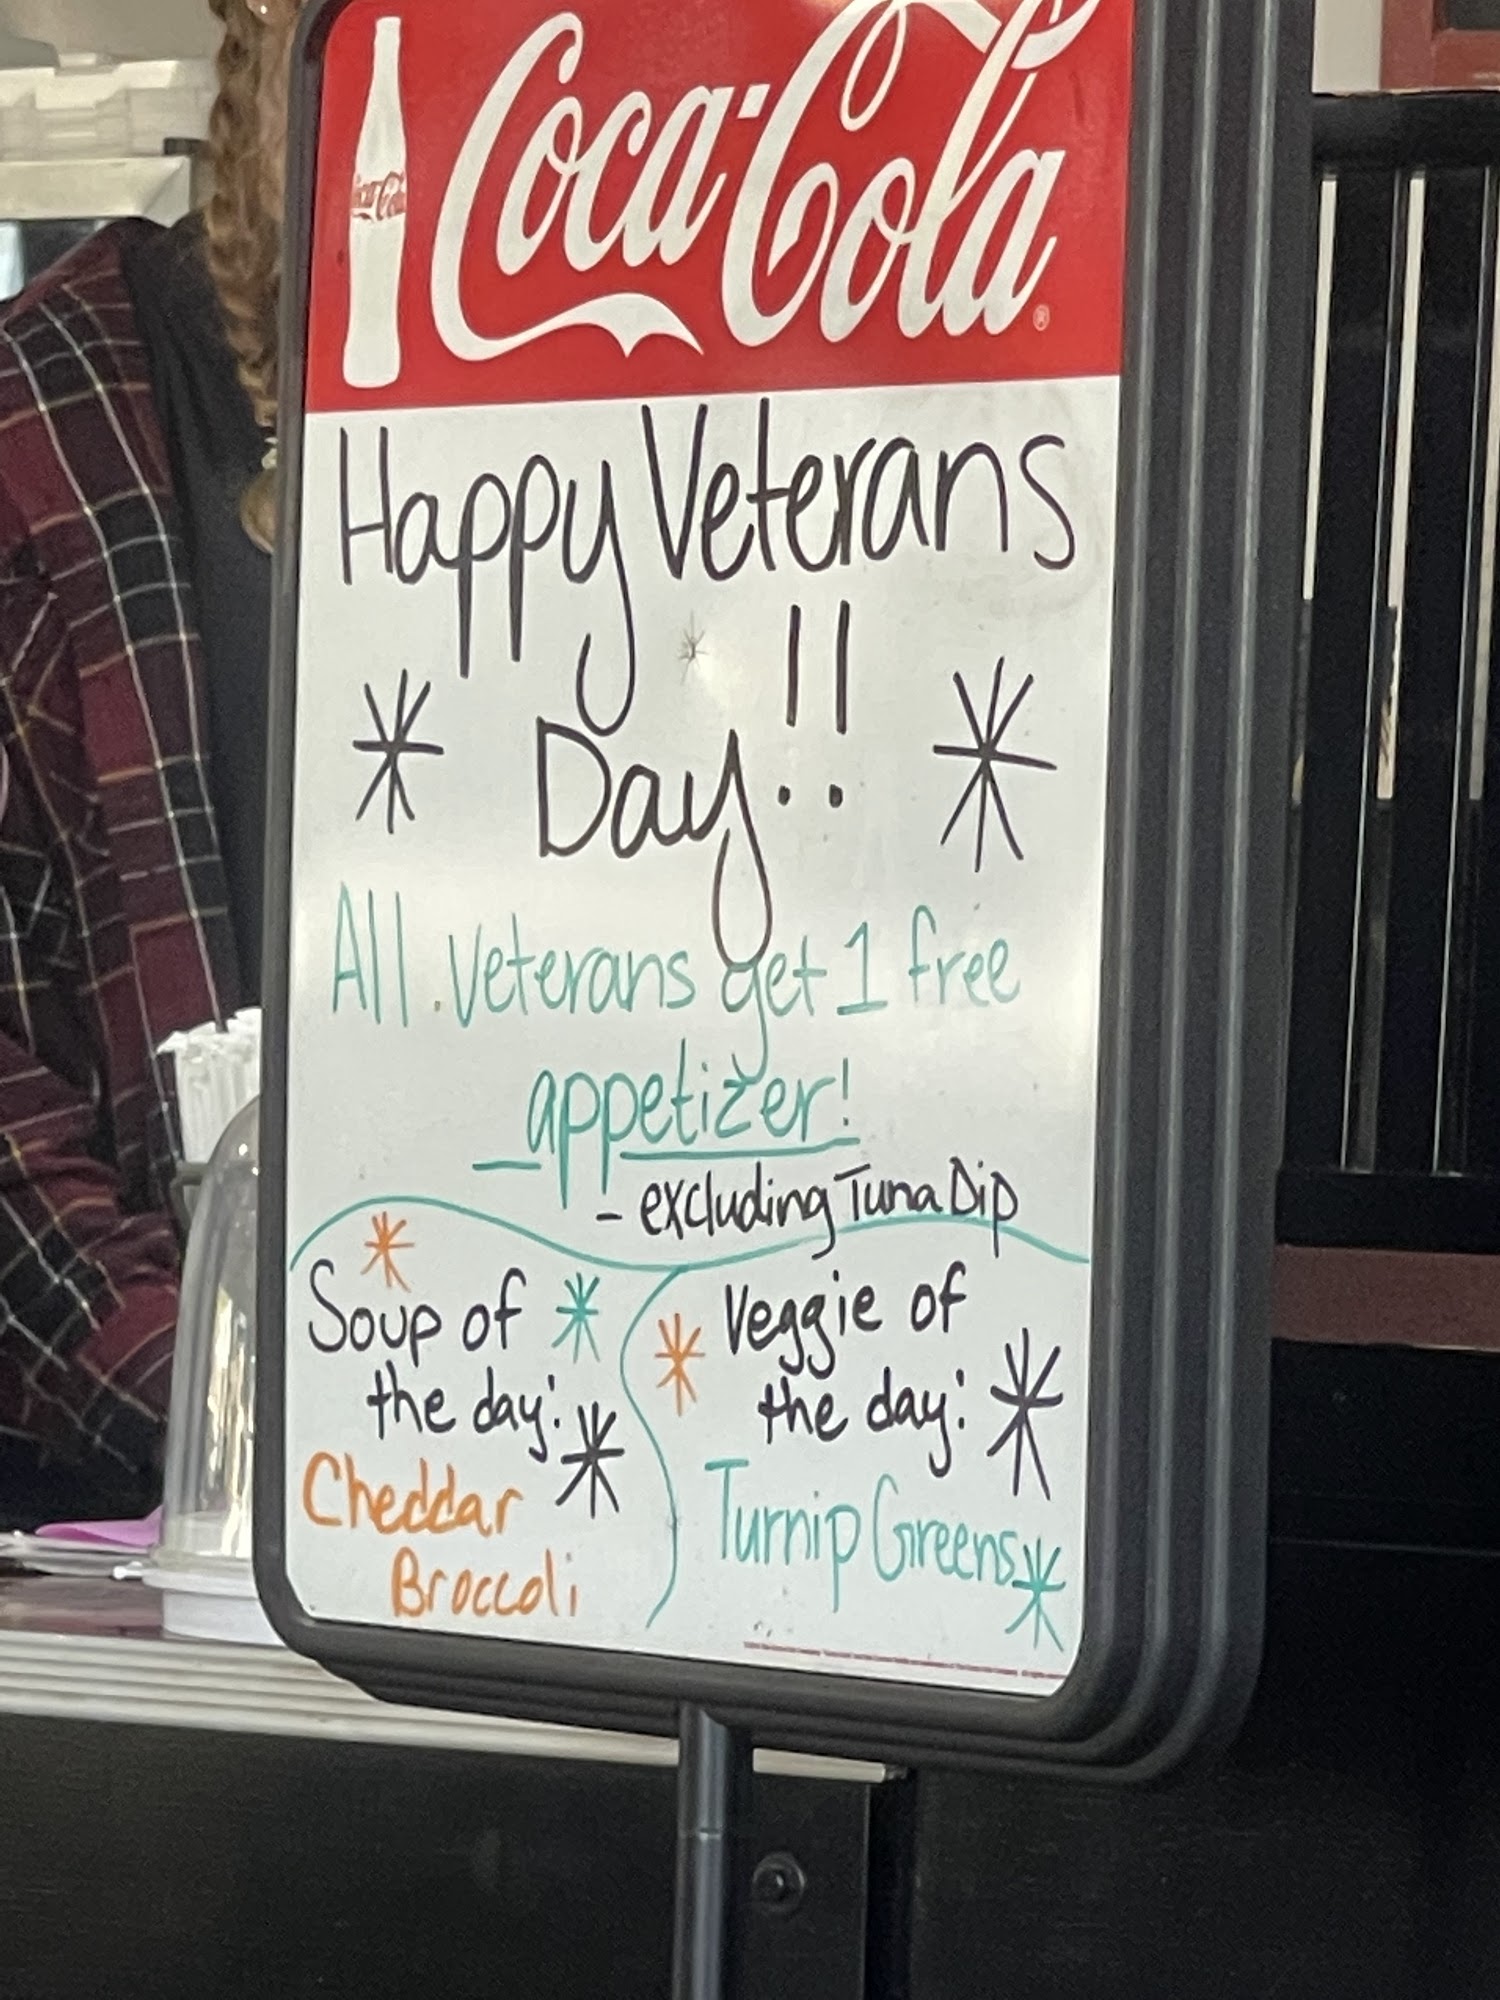 Coca-Cola
Coca-Cola
Happy Veterans
Day!!
All Veterans get 1 free
appetizer!
- excluding Tuna Dip
Soup of
the day:
Cheddar
Broccoli
Veggie of
the day:
Turnip Greens